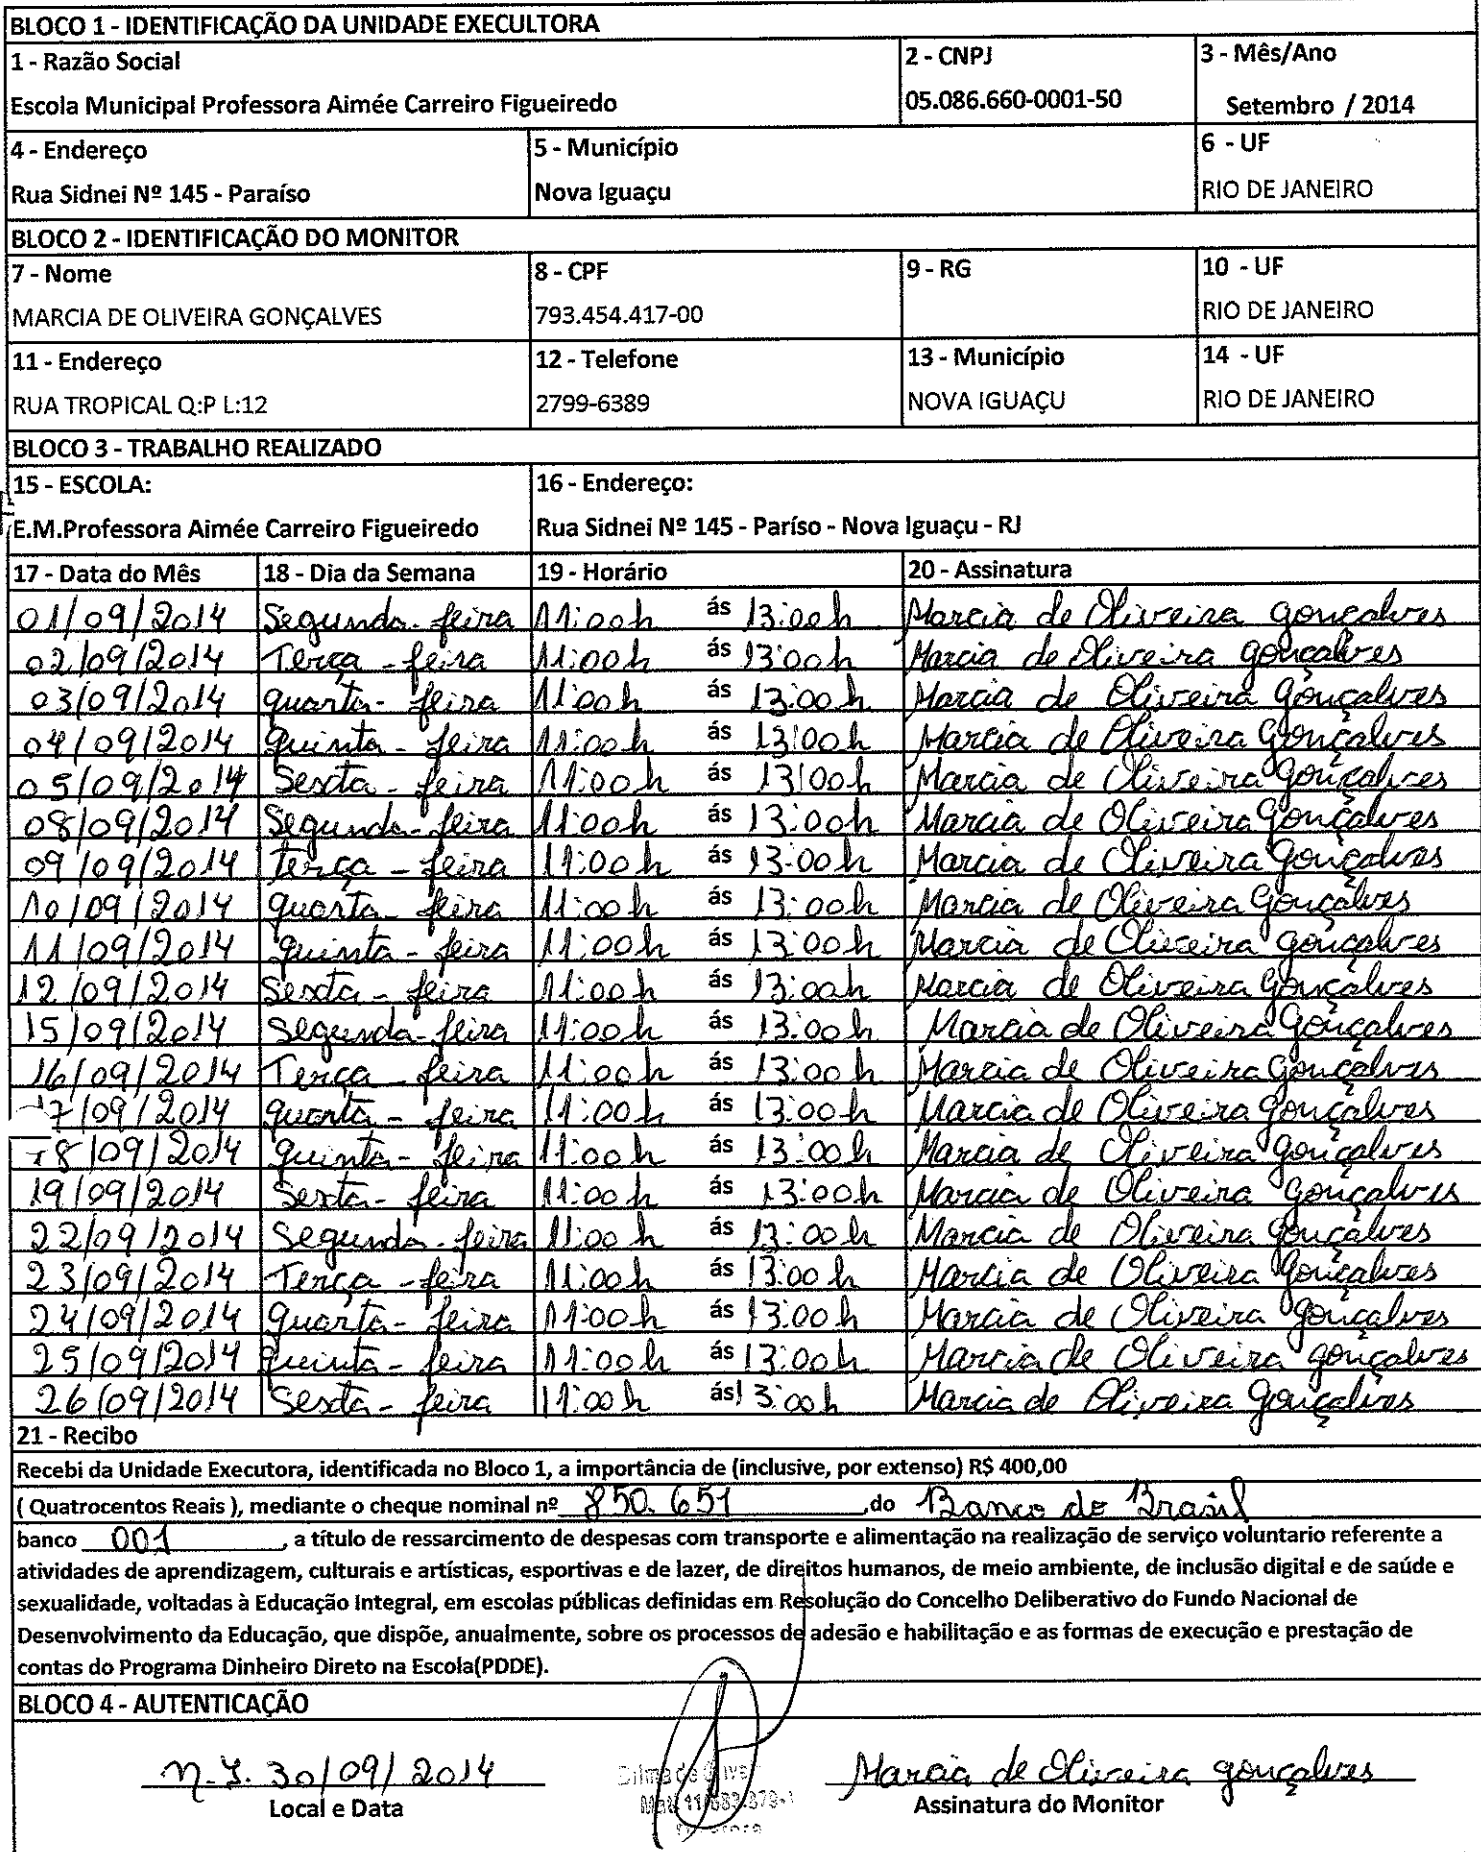 BLOCO 1 - IDENTIFICAÇÃO DA UNIDADE EXECULTORA
1 - Razão Social 2 - CNPJ 3 - Mês/Ano
Escola Municipal Professora Aimée Carreiro Figueiredo 05.086.660-0001-50 Setembro / 2014
4 - Endereço 5 - Município 6 - UF
Rua Sidnei Nº 145 - Paraíso Nova Iguaçu RIO DE JANEIRO
BLOCO 2 - IDENTIFICAÇÃO DO MONITOR
7 - Nome 8 - CPF 9 - RG 10 - UF
MARCIA DE OLIVEIRA GONÇALVES 793.454.417-00 RIO DE JANEIRO
11 - Endereço 12 - Telefone 13 - Município 14 - UF
RUA TROPICAL Q:P L:12 2799-6389 NOVA IGUAÇU RIO DE JANEIRO
BLOCO 3 - TRABALHO REALIZADO
15 - ESCOLA: 16 - Endereço:
E.M.Professora Aimée Carreiro Figueiredo Rua Sidnei Nº 145 - Paríso - Nova Iguaçu - RJ
17 - Data do Mês 18 - Dia da Semana 19 - Horário 20 - Assinatura
01/09/2014 Segunda-feira 11:00h ás 13:00h Marcia de Oliveira Gonçalves
02/09/2014 Terça-feira 11:00h ás 13:00h Marcia de Oliveira Gonçalves
03/09/2014 quarta-feira 11:00h ás 13:00h Marcia de Oliveira Gonçalves
04/09/2014 quinta-feira 11:00h ás 13:00h Marcia de Oliveira Gonçalves
05/09/2014 Sexta-feira 11:00h ás 13:00h Marcia de Oliveira Gonçalves
08/09/2014 Segunda-feira 11:00h ás 13:00h Marcia de Oliveira Gonçalves
09/09/2014 terça-feira 11:00h ás 13:00h Marcia de Oliveira Gonçalves
10/09/2014 quarta-feira 11:00h ás 13:00h Marcia de Oliveira Gonçalves
11/09/2014 quinta-feira 11:00h ás 13:00h Marcia de Oliveira Gonçalves
12/09/2014 Sexta-feira 11:00h ás 13:00h Marcia de Oliveira Gonçalves
15/09/2014 Segunda-feira 11:00h ás 13:00h Marcia de Oliveira Gonçalves
16/09/2014 Terça-feira 11:00h ás 13:00h Marcia de Oliveira Gonçalves
17/09/2014 quarta-feira 11:00h ás 13:00h Marcia de Oliveira Gonçalves
18/09/2014 quinta-feira 11:00h ás 13:00h Marcia de Oliveira Gonçalves
19/09/2014 Sexta-feira 11:00h ás 13:00h Marcia de Oliveira Gonçalves
22/09/2014 Segunda-feira 11:00h ás 13:00h Marcia de Oliveira Gonçalves
23/09/2014 Terça-feira 11:00h ás 13:00h Marcia de Oliveira Gonçalves
24/09/2014 quarta-feira 11:00h ás 13:00h Marcia de Oliveira Gonçalves
25/09/2014 quinta-feira 11:00h ás 13:00h Marcia de Oliveira gonçalves
26/09/2014 Sexta-feira 11:00h ás 13:00h Marcia de Oliveira Gonçalves
21 - Recibo
Recebi da Unidade Executora, identificada no Bloco 1, a importância de (inclusive, por extenso) R$ 400,00
( Quatrocentos Reais ), mediante o cheque nominal nº 850.651 ,do Banco do Brasil
banco 001 , a título de ressarcimento de despesas com transporte e alimentação na realização de serviço voluntario referente a
atividades de aprendizagem, culturais e artísticas, esportivas e de lazer, de direitos humanos, de meio ambiente, de inclusão digital e de saúde e
sexualidade, voltadas à Educação Integral, em escolas públicas definidas em Resolução do Concelho Deliberativo do Fundo Nacional de
Desenvolvimento da Educação, que dispõe, anualmente, sobre os processos de adesão e habilitação e as formas de execução e prestação de
contas do Programa Dinheiro Direto na Escola(PDDE).
BLOCO 4 - AUTENTICAÇÃO
N.I. 30/09/2014 Marcia de Oliveira gonçalves
Local e Data Assinatura do Monitor